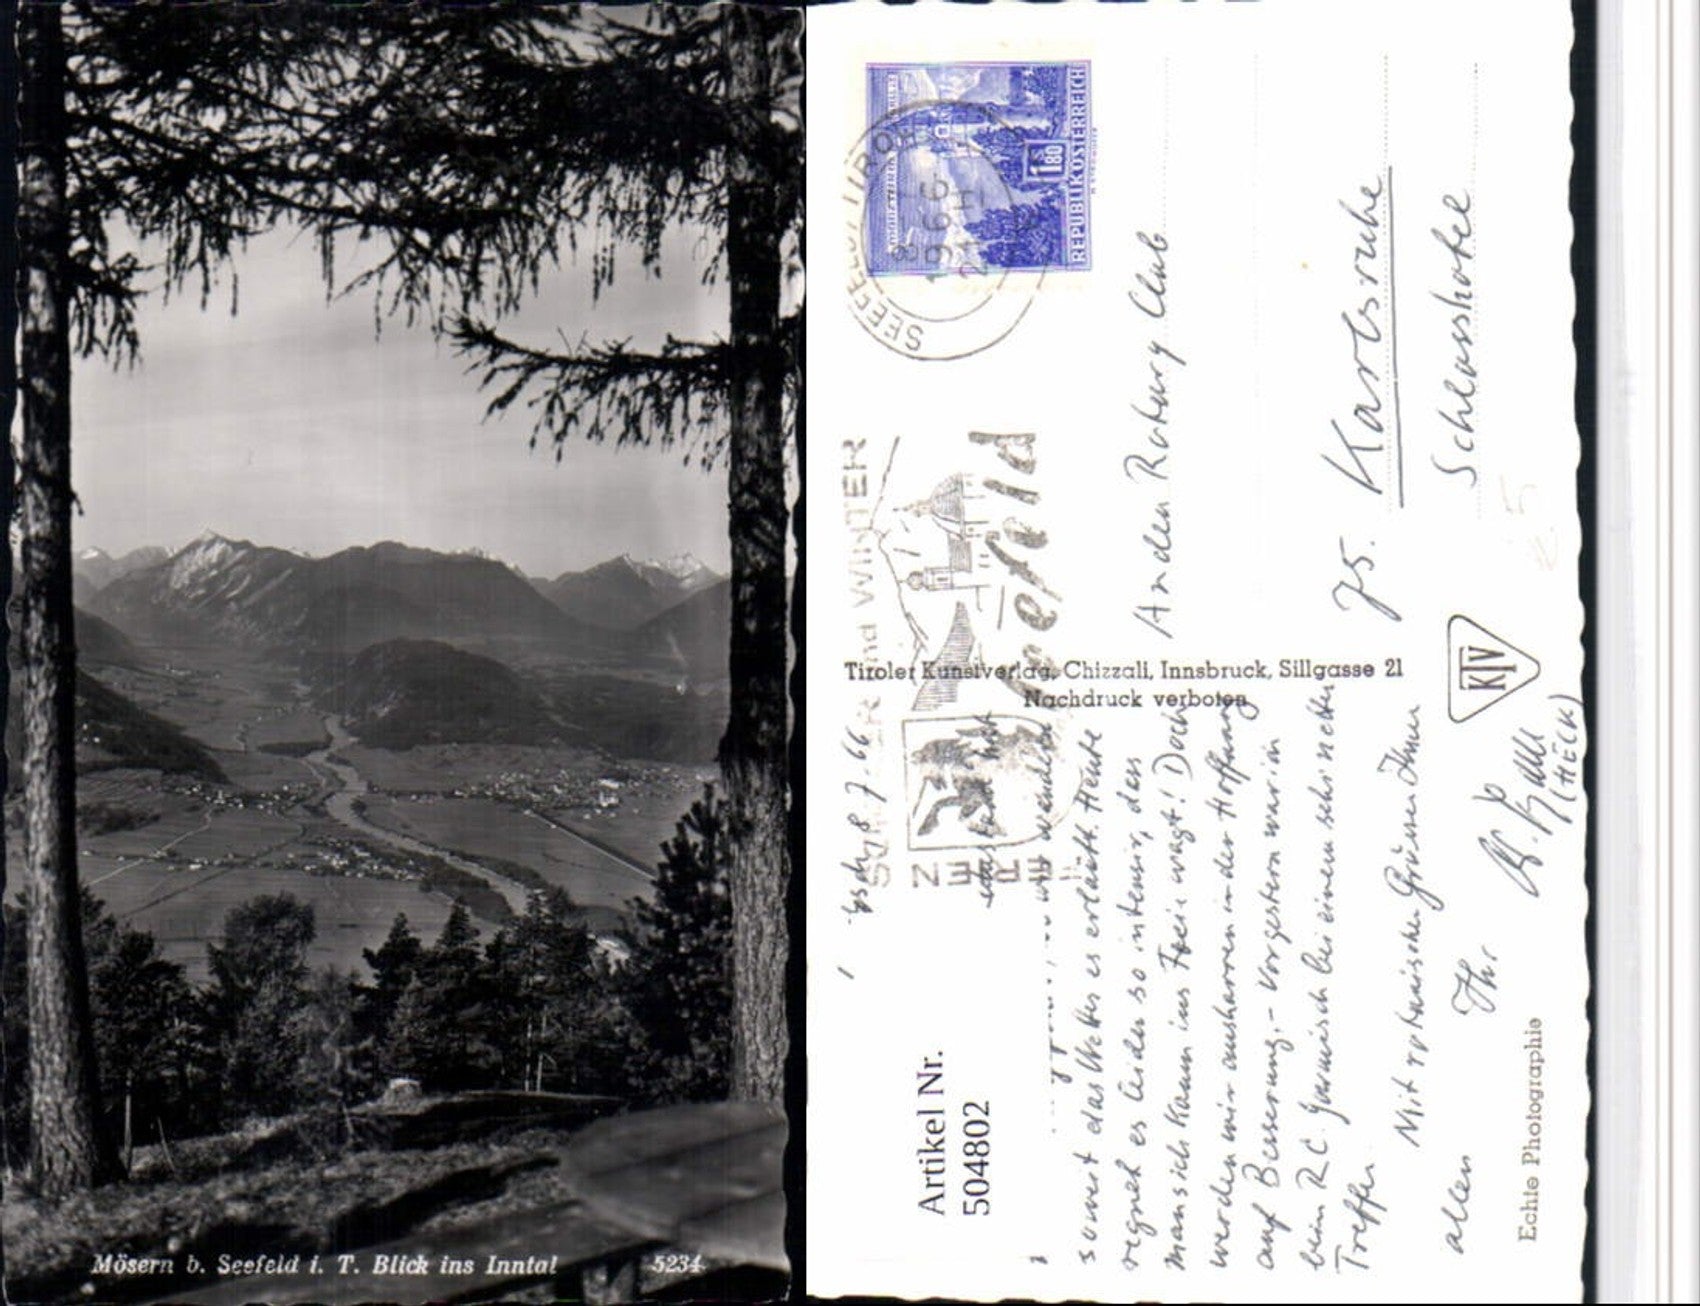 Mösern b. Seefeld i. T. Blick ins Inntal
5234
REPUBLIK ÖSTERREICH
S 1.80
SEEFELD / TIROL
8
1966
21
SOMMER und WINTER
Seefeld
Tiroler Kunstverlag, Chizzali, Innsbruck, Sillgasse 21
Nachdruck verboten
KTV
Echte Photographie
Artikel Nr.
504802
An den Rotary Club
75. Karlsruhe
Schlosshotel
8.7.66
wir wandern
soweit das Wetter es erlaubt. Heute
regnet es leider so intensiv, dass
man sich kaum ins Freie wagt! Doch
werden wir ausharren in der Hoffnung
auf Besserung. - Vorgestern war ich
beim R.C. Garmisch bei einem sehr netten
Treffen.
Mit rotarischen Grüssen Ihnen
allen Ihr
(HECK)